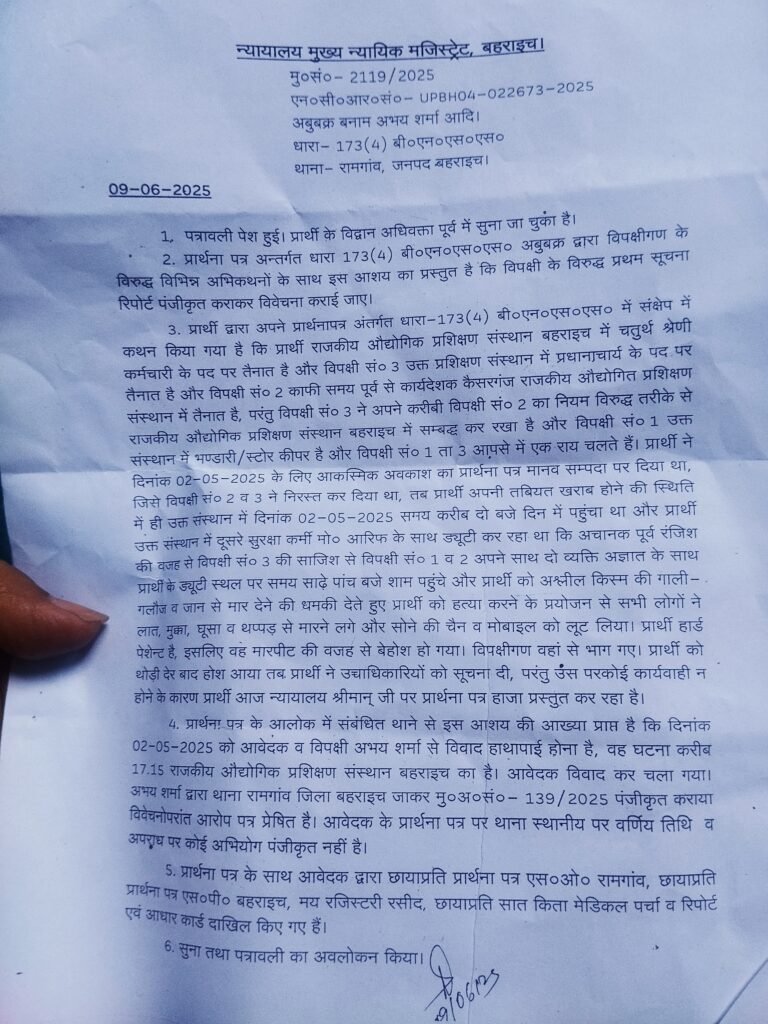 न्यायालय मुख्य न्यायिक मजिस्ट्रेट, बहराइच।
मु०सं०- 2119/2025
एन०सी०आर०सं०- UPBH04-022673-2025
अबुबक्र बनाम अभय शर्मा आदि।
धारा- 173(4) बी०एन०एस०एस०
थाना- रामगांव, जनपद बहराइच।
09-06-2025
1, पत्रावली पेश हुई। प्रार्थी के विद्वान अधिवक्ता पूर्व में सुना जा चुका है।
2. प्रार्थना पत्र अन्तर्गत धारा 173(4) बी०एन०एस०एस० अबुबक्र द्वारा विपक्षीगण के
विरुद्ध विभिन्न अभिकथनों के साथ इस आशय का प्रस्तुत है कि विपक्षी के विरुद्ध प्रथम सूचना
रिपोर्ट पंजीकृत कराकर विवेचना कराई जाए।
3. प्रार्थी द्वारा अपने प्रार्थनापत्र अंतर्गत धारा-173(4) बी०एन०एस०एस० में संक्षेप में
कथन किया गया है कि प्रार्थी राजकीय औद्योगिक प्रशिक्षण संस्थान बहराइच में चतुर्थ श्रेणी
कर्मचारी के पद पर तैनात है और विपक्षी सं० 3 उक्त प्रशिक्षण संस्थान में प्रधानाचार्य के पद पर
तैनात है और विपक्षी सं० 2 काफी समय पूर्व से कार्यदेशक कैसरगंज राजकीय औद्योगित प्रशिक्षण
संस्थान में तैनात है, परंतु विपक्षी सं० 3 ने अपने करीबी विपक्षी सं० 2 का नियम विरुद्ध तरीके से
राजकीय औद्योगिक प्रशिक्षण संस्थान बहराइच में सम्बद्ध कर रखा है और विपक्षी सं० 1 उक्त
संस्थान में भण्डारी/स्टोर कीपर है और विपक्षी सं० 1 ता 3 आपसे में एक राय चलते हैं। प्रार्थी ने
दिनांक 02-05-2025 के लिए आकस्मिक अवकाश का प्रार्थना पत्र मानव सम्पदा पर दिया था,
जिसे विपक्षी सं० 2 व 3 ने निरस्त कर दिया था, तब प्रार्थी अपनी तबियत खराब होने की स्थिति
में ही उक्त संस्थान में दिनांक 02-05-2025 समय करीब दो बजे दिन में पहुंचा था और प्रार्थी
उक्त संस्थान में दूसरे सुरक्षा कर्मी मो० आरिफ के साथ ड्यूटी कर रहा था कि अचानक पूर्व रंजिश
की वजह से विपक्षी सं० 3 की साजिश से विपक्षी सं० 1 व 2 अपने साथ दो व्यक्ति अज्ञात के साथ
प्रार्थी के ड्यूटी स्थल पर समय साढ़े पांच बजे शाम पहुंचे और प्रार्थी को अश्लील किस्म की गाली-
गलौज व जान से मार देने की धमकी देते हुए प्रार्थी को हत्या करने के प्रयोजन से सभी लोगों ने
लात, मुक्का, घूसा व थप्पड़ से मारने लगे और सोने की चैन व मोबाइल को लूट लिया। प्रार्थी हार्ड
पेशेन्ट है, इसलिए वह मारपीट की वजह से बेहोश हो गया। विपक्षीगण वहां से भाग गए। प्रार्थी को
थोड़ी देर बाद होश आया तब प्रार्थी ने उचाधिकारियों को सूचना दी, परंतु उस परकोई कार्यवाही न
होने के कारण प्रार्थी आज न्यायालय श्रीमान् जी पर प्रार्थना पत्र हाजा प्रस्तुत कर रहा है।
4. प्रार्थना पत्र के आलोक में संबंधित थाने से इस आशय की आख्या प्राप्त है कि दिनांक
02-05-2025 को आवेदक व विपक्षी अभय शर्मा से विवाद हाथापाई होना है, वह घटना करीब
17.15 राजकीय औद्योगिक प्रशिक्षण संस्थान बहराइच का है। आवेदक विवाद कर चला गया।
अभय शर्मा द्वारा थाना रामगांव जिला बहराइच जाकर मु०अ०सं०- 139/2025 पंजीकृत कराया
विवेचनोपरांत आरोप पत्र प्रेषित है। आवेदक के प्रार्थना पत्र पर थाना स्थानीय पर वर्णिय तिथि व
अपराध पर कोई अभियोग पंजीकृत नहीं है।
5. प्रार्थना पत्र के साथ आवेदक द्वारा छायाप्रति प्रार्थना पत्र एस०ओ० रामगांव, छायाप्रति
प्रार्थना पत्र एस०पी० बहराइच, मय रजिस्टरी रसीद, छायाप्रति सात किता मेडिकल पर्चा व रिपोर्ट
एवं आधार कार्ड दाखिल किए गए हैं।
6. सुना तथा पत्रावली का अवलोकन किया।